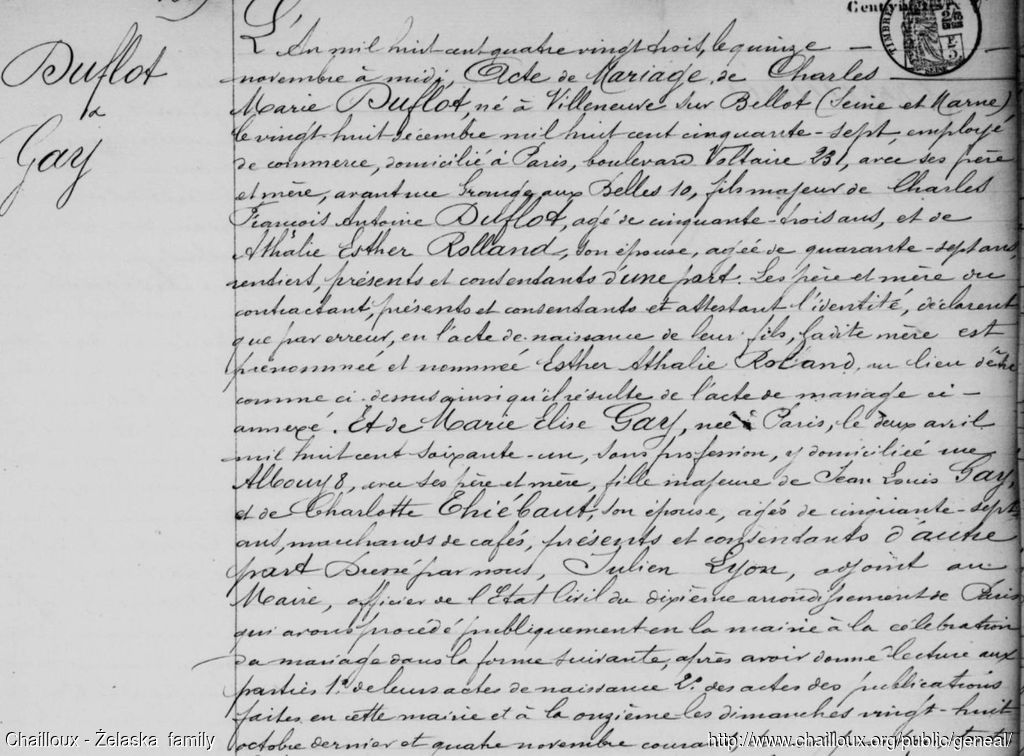 Duflot
&
Gay
Cent vingt
TIMBRE
L'An mil huit cent quatre vingt trois, le quinze
novembre à midi, Acte de Mariage de Charles
Marie Duflot, né à Villeneuve sur Bellot (Seine et Marne)
le vingt-huit décembre mil huit cent cinquante-sept employé
de commerce, domicilié à Paris, boulevard Voltaire 231, avec ses père
et mère, avant rue Grange aux Belles 10, fils majeur de Charles
François Antoine Duflot, agé de cinquante-trois ans, et de
Athalie Esther Rolland, son épouse, agée de quarante-sept ans,
rentiers, présents et consentants d'une part. Les père et mère du
contractant, présents et consentants et attestant l'identité, déclarent
que par erreur, en l'acte de naissance de leur fils, ladite mère est
prénommée et nommée Esther Athalie Roland, au lieu d'être
comme ci-dessus ainsi qu'il résulte de l'acte de mariage ci-
annexé. Et de Marie Elise Gay, née à Paris, le deux avril
mil huit cent soixante-un, sans profession, y domiciliée rue
Albouy 8, avec ses père et mère, fille majeure de Jean Louis Gay,
et de Charlotte Thiébaut, son épouse, agés de cinquante-sept
ans, marchands de cafés, présents et consentants d'autre
part Dressé par nous, Julien Lyon, adjoint au
Maire, officier de l'Etat Civil du dixième arrondissement de Paris
qui avons procédé publiquement en la mairie à la célébration
du mariage dans la forme suivante, après avoir donné lecture aux
parties 1° de leurs actes de naissance 2° des actes des publications
faites en cette mairie et à la onzième les dimanches vingt-huit
octobre dernier et quatre novembre courant
Chailloux - Żelaska family
http://www.chailloux.org/public/geneal/